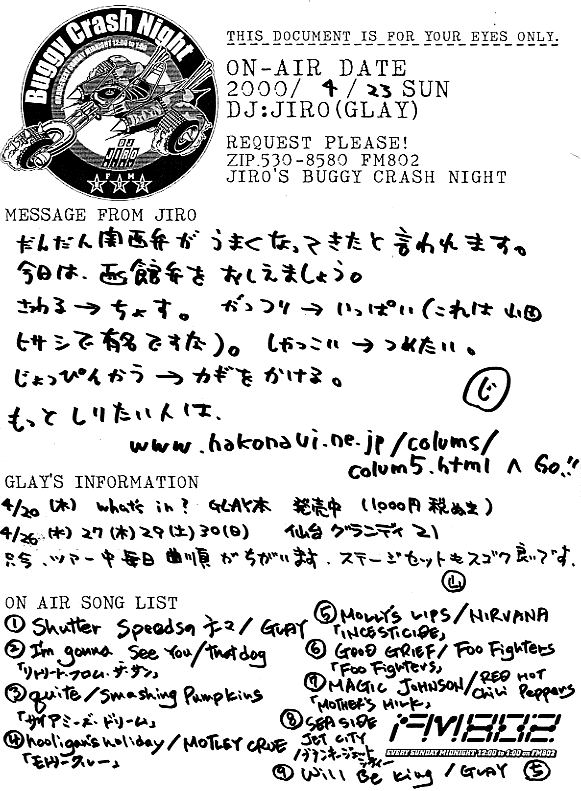 Buggy Crash Night
EVERY SUNDAY MIDNIGHT 12:00 to 1:00
DJ
JIRO
FM
802
THIS DOCUMENT IS FOR YOUR EYES ONLY.
ON-AIR DATE
2000/ 4 / 23 SUN
DJ:JIRO(GLAY)
REQUEST PLEASE!
ZIP.530-8580 FM802
JIRO'S BUGGY CRASH NIGHT
MESSAGE FROM JIRO
だんだん関西弁がうまくなってきたと言われます。
今日は、函館弁をおしえましょう。
さわる→ちょす。 がっつり→いっぱい(これは山田
ヒサシで有名ですな)。 しゃっこい→つめたい。
じょっぴんかう→カギをかける。
じ
もっとしりたい人は、
www.hakonavi.ne.jp/colums/
colum5.html へ Go!!
GLAY'S INFORMATION
4/20 (木) what's in? GLAY本 発売中 (1000円 税ぬき)
4/26 (水) 27 (木) 29 (土) 30 (日) 仙台グランディ21
只今、ツアー中毎日曲順がちがいます。ステージセットもスゴク良いです。
ON AIR SONG LIST
① Shutter Speedsのテーマ/GLAY
② I'm gonna See You/that dog
「リトリート・フロム・ザ・サン」
③ quite/Smashing Pumpkins
「サイアミーズ・ドリーム」
④ hooligan's holiday/MOTLEY CRUE
「モトリークルー」
⑤ MOLLY'S LIPS/NIRVANA
「INCESTICIDE」
⑥ GOOD GRIEF/Foo Fighters
「Foo Fighters」
⑦ MAGIC JOHNSON/RED HOT Chili Peppers
「MOTHER'S MILK」
⑧ SEA SIDE
JET CITY
⑨ Will Be King/GLAY
FM802
EVERY SUNDAY MIDNIGHT 12:00 to 1:00 on FM802